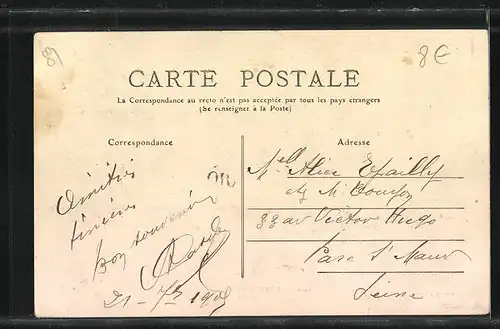 89
8€
CARTE POSTALE
La Correspondance au recto n'est pas acceptée par tous les pays étrangers
(Se renseigner à la Poste)
Correspondance
Adresse
Amitiés
sincères
bon souvenir
21-7bre 190
Melle Alice
chez M
33 av Victor Hugo
Parc St Maur
Seine